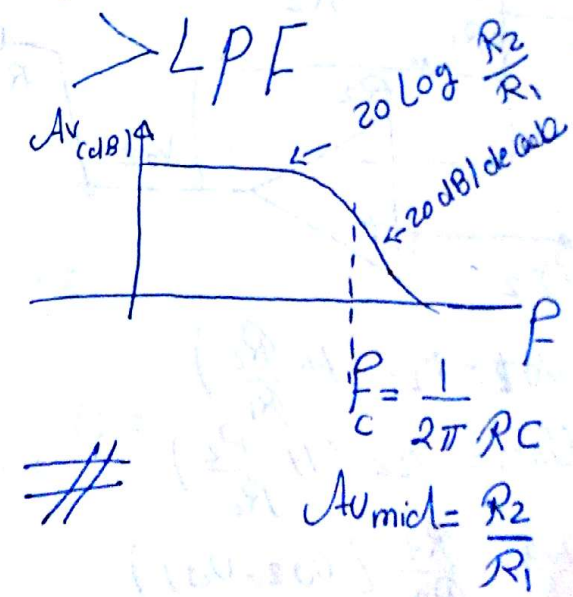 > LPF
20 Log R2/R1
Av(dB)
20 dB/decade
f
fc = 1/2π RC
Avmid = R2/R1